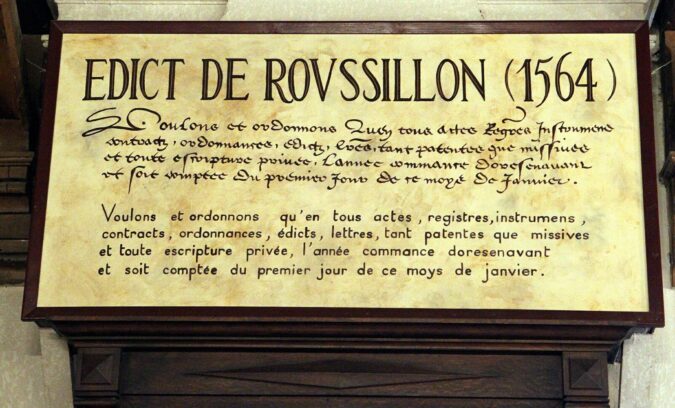 EDICT DE ROVSSILLON (1564)
Voulons et ordonnons Qu'en tous actes Regres Instrumens
contractz, ordonnances, edictz, lres, tant patentes que missives
et toute escripture privee, l'annee commance doresenavant
et soit comptee du premier jour de ce moys de Janvier.
Voulons et ordonnons qu'en tous actes, registres, instrumens,
contracts, ordonnances, édicts, lettres, tant patentes que missives
et toute escripture privée, l'année commance doresenavant
et soit comptée du premier jour de ce moys de janvier.